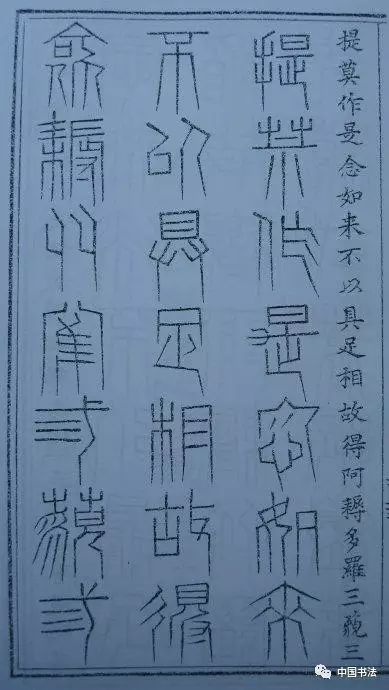 提莫作是念如来不以具足相故得阿耨多羅三藐三
提莫作是念如來
不以具足相故得
阿耨多羅三藐三
中国书法